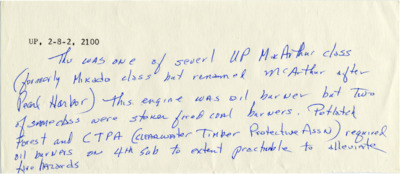 UP, 2-8-2, 2100
This was one of severl UP MacArthur class
(formerly Mikado class but renamed McArthur after
Pearl Harbor) This engine was oil burner but two
of same class were stoker fired coal burners. Potlatch
Forest and CTPA (Clearwater Timber Protective Assn) required
oil burners on 4th Sub to extent practicable to alleviate
fire hazards